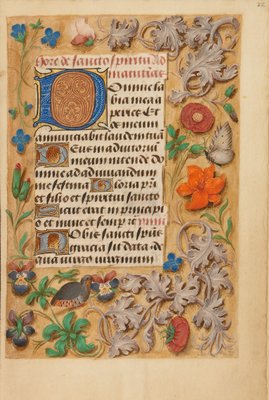 Hore de sancto spiritu Ad
matutinas
Domine la
bia mea a
peries Et
os meum
annunciabit laudem tuam
Deus in adiutoriu
meum intende do
mine ad adiuuandum
me festina Gloria pri
et filio et spiritui sancto
sicut erat in principio
et nunc et semper
Nobis sancti spūs
gracia sit data de
qua uirgo uirginum